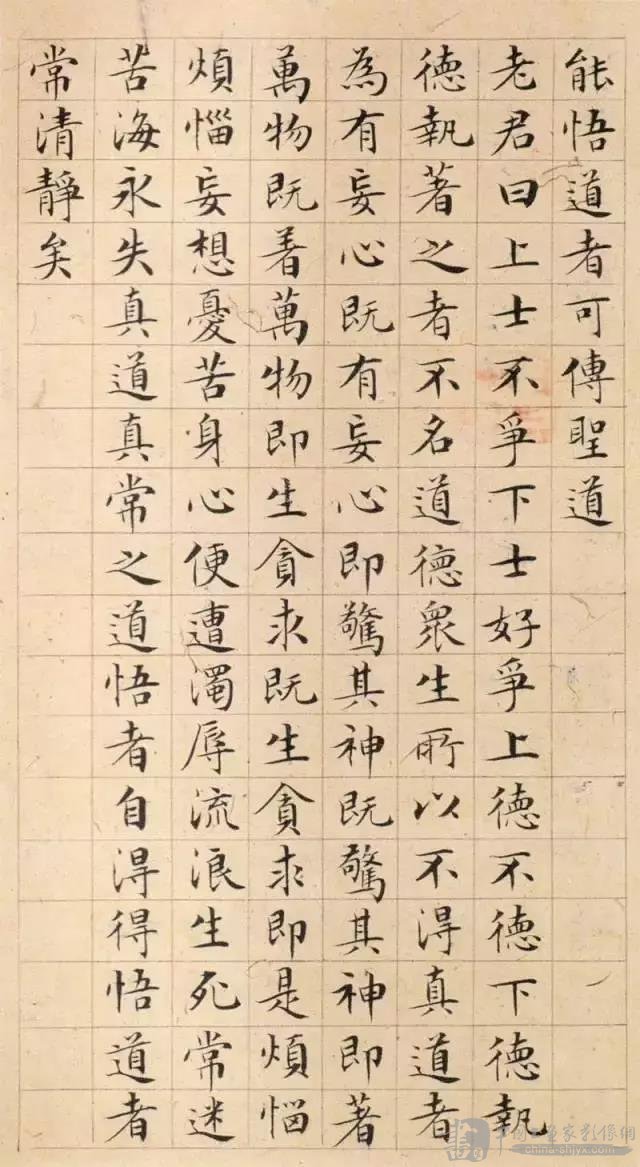 能悟道者可傳聖道
老君曰上士不爭下士好爭上德不德下德執
德執著之者不名道德眾生所以不得真道者
為有妄心既有妄心即驚其神既驚其神即著
萬物既着萬物即生貪求既生貪求即是煩惱
煩惱妄想憂苦身心便遭濁辱流浪生死常迷
苦海永失真道真常之道悟者自淂得悟道者
常清靜矣
china-shjyx.com